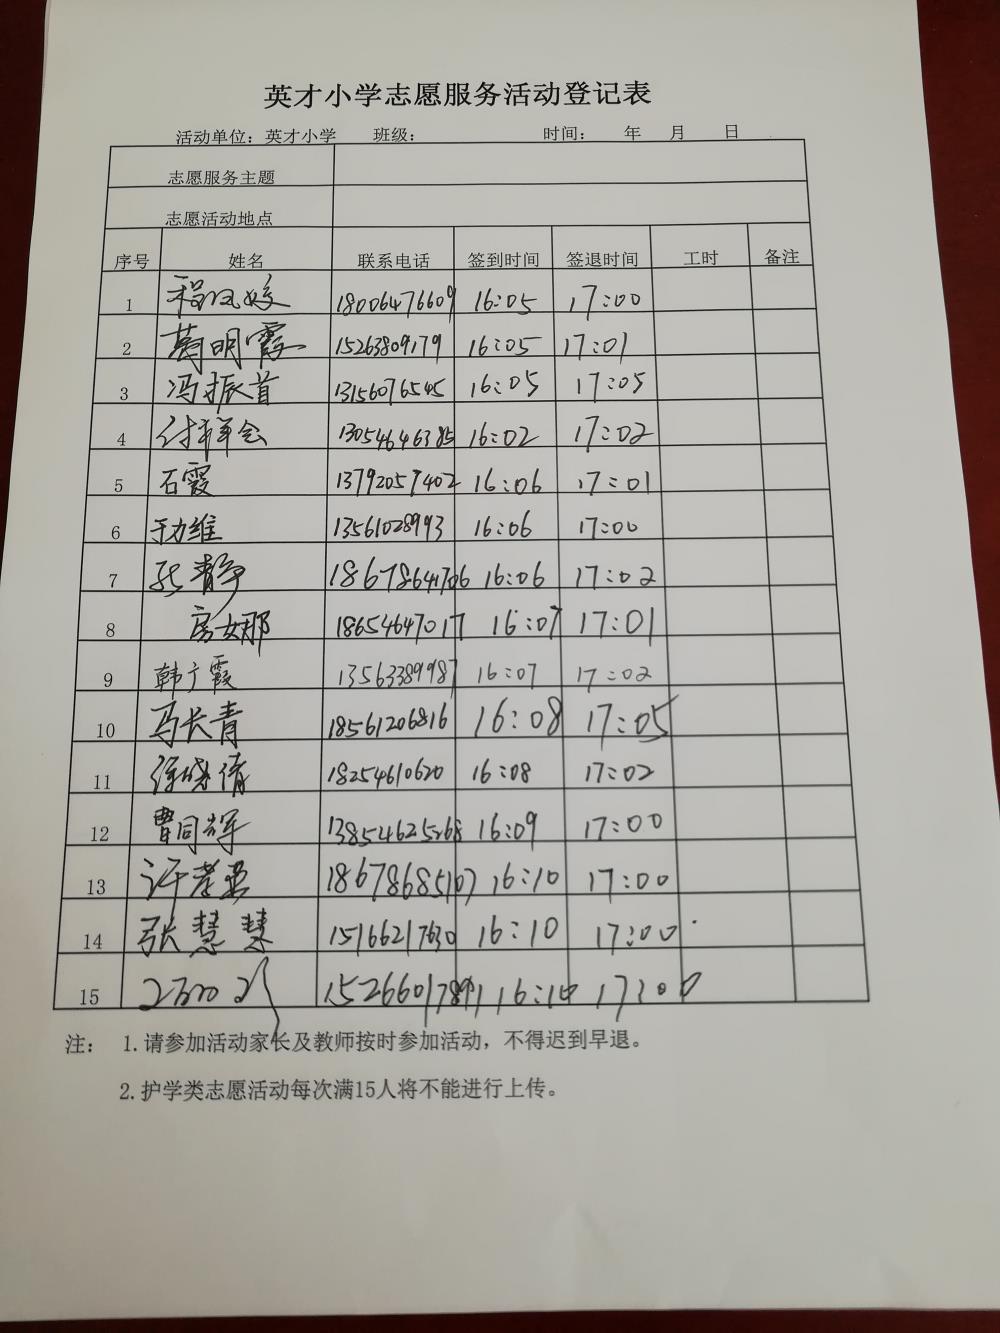 英才小学志愿服务活动登记表
活动单位：英才小学 班级： 时间： 年 月 日
志愿服务主题
志愿活动地点
序号 姓名 联系电话 签到时间 签退时间 工时 备注
1 程凤姣 18006476609 16:05 17:00
2 葛明霞 15263809179 16:05 17:01
3 冯振首 13156076545 16:05 17:05
4 付祥会 13054646385 16:02 17:02
5 石霞 13792057402 16:06 17:01
6 于力维 13561028993 16:06 17:00
7 张静 18678641706 16:06 17:02
8 房娜 18654647017 16:07 17:01
9 韩广霞 13563389987 16:07 17:02
10 马长青 18561206816 16:08 17:05
11 徐晓倩 18254610620 16:08 17:02
12 曹同辉 13854625268 16:09 17:00
13 许孝 18678685107 16:10 17:00
14 张慧慧 15166217630 16:10 17:00
15 15266017891 16:10 17:00
注： 1.请参加活动家长及教师按时参加活动，不得迟到早退。
2.护学类志愿活动每次满15人将不能进行上传。